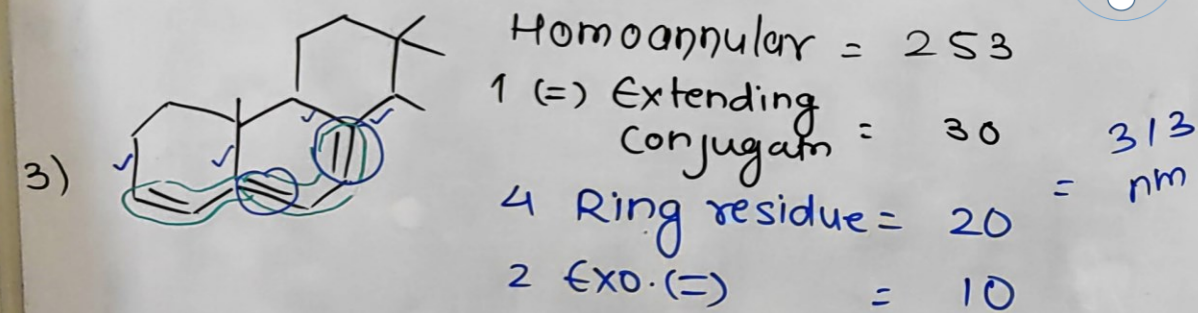 Homoannular = 253
1 (=) Extending
Conjugatn = 30
313
4 Ring residue = 20
= nm
2 Exo. (=) = 10
3)